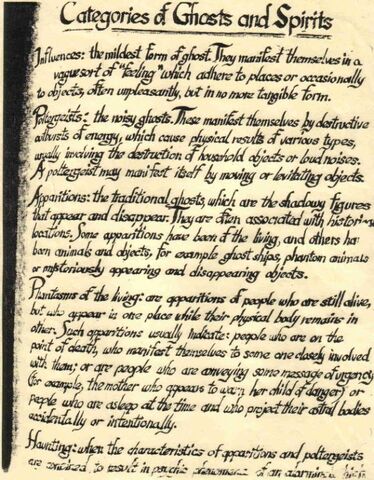 Categories of Ghosts and Spirits
Influences: the mildest form of ghost. They manifest themselves in a
vague sort of "feeling" which adhere to places or occasionally
to objects, often unpleasantly, but in no more tangible form.
Poltergeists: the noisy ghosts. These manifest themselves by destructive
outbursts of energy, which cause physical results of various types,
usually involving the destruction of household objects or loud noises.
A poltergeist may manifest itself by moving or levitating objects.
Apparitions: the traditional ghosts, which are the shadowy figures
that appear and disappear. They are often associated with historical
locations. Some apparitions have been of the living, and others ha
been animals and objects, for example ghost ships, phantom animals
or mysteriously appearing and disappearing objects.
Phantasms of the living: are apparitions of people who are still alive,
but who appear in one place while their physical body remains in
other. Such apparitions usually indicate: people who are on the
point of death, who manifest themselves to some one closely involved
with them; or are people who are conveying some message of urgency
(for example, the mother who appears to warn her child of danger) or
people who are asleep at the time and who project their astral bodies
accidentally or intentionally.
Haunting: when the characteristics of apparitions and poltergeists
are combined to result in psychic phenomena of an alarming high